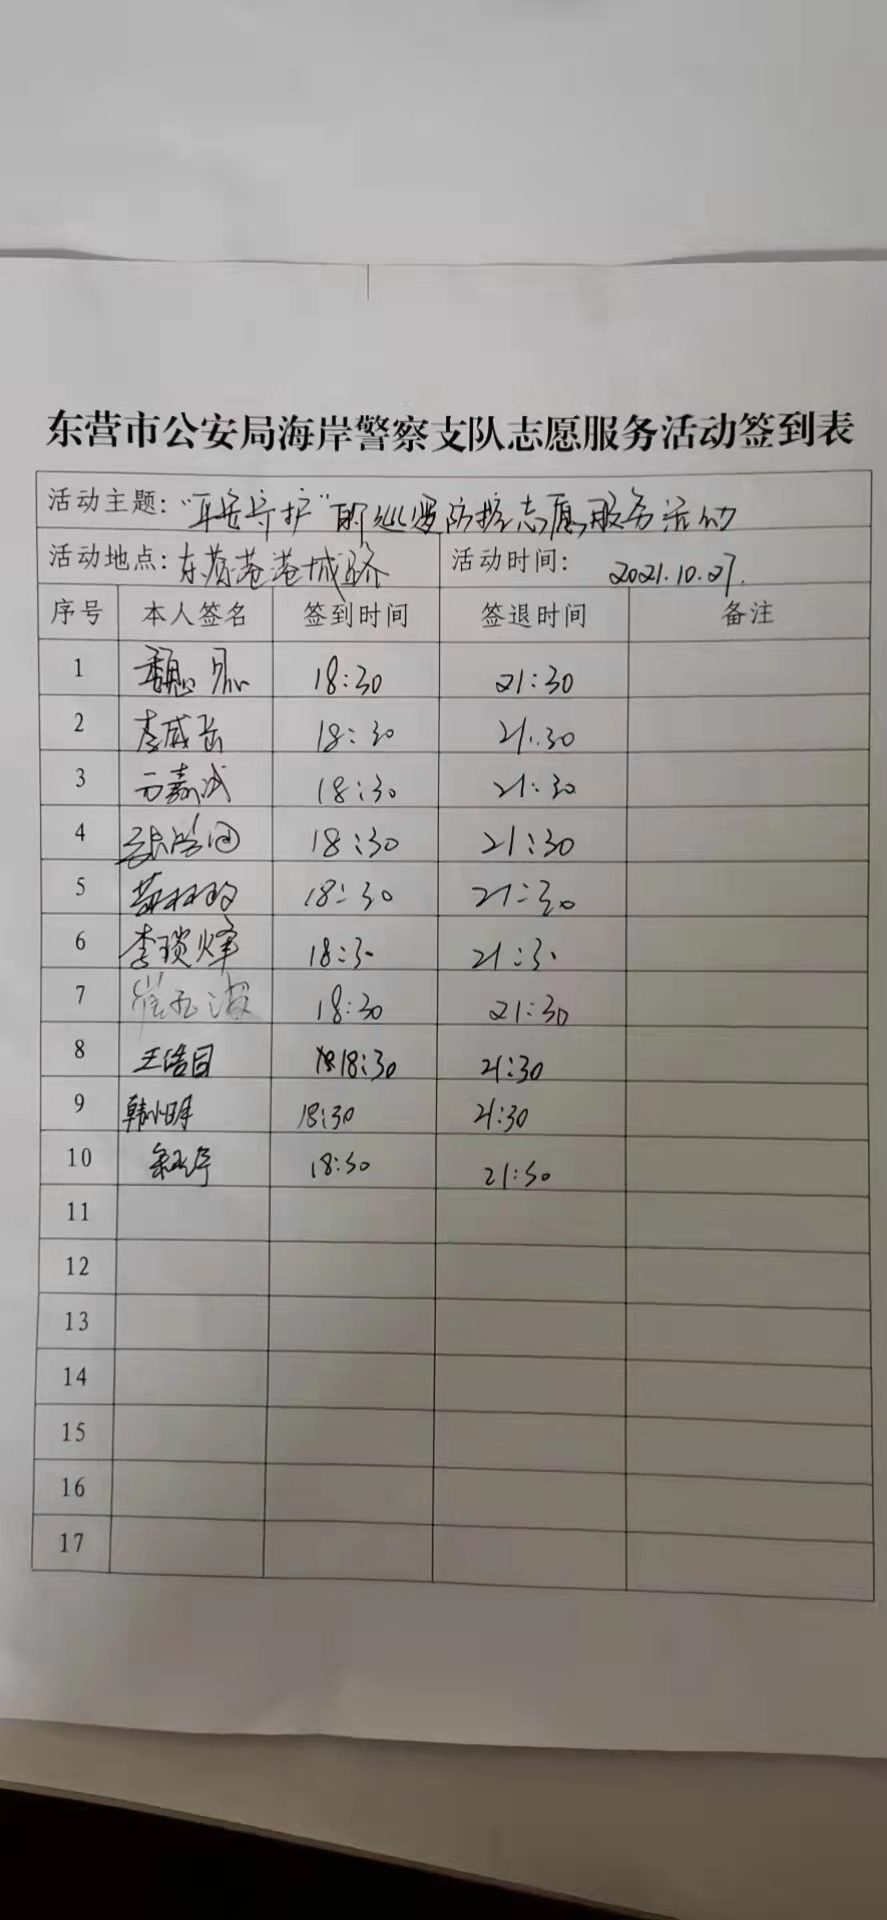 东营市公安局海岸警察支队志愿服务活动签到表
活动主题："平安守护"的巡逻防控志愿服务活动
活动地点：东营港港城路 活动时间： 2021.10.27.
序号 本人签名 签到时间 签退时间 备注
1 18:30 21:30
2 李成岳 18:30 21:30
3 18:30 21:30
4 18:30 21:30
5 18:30 21:30
6 李琐烽 18:30 21:30
7 18:30 21:30
8 王浩目 18:30 21:30
9 韩小明 18:30 21:30
10 18:30 21:30
11
12
13
14
15
16
17